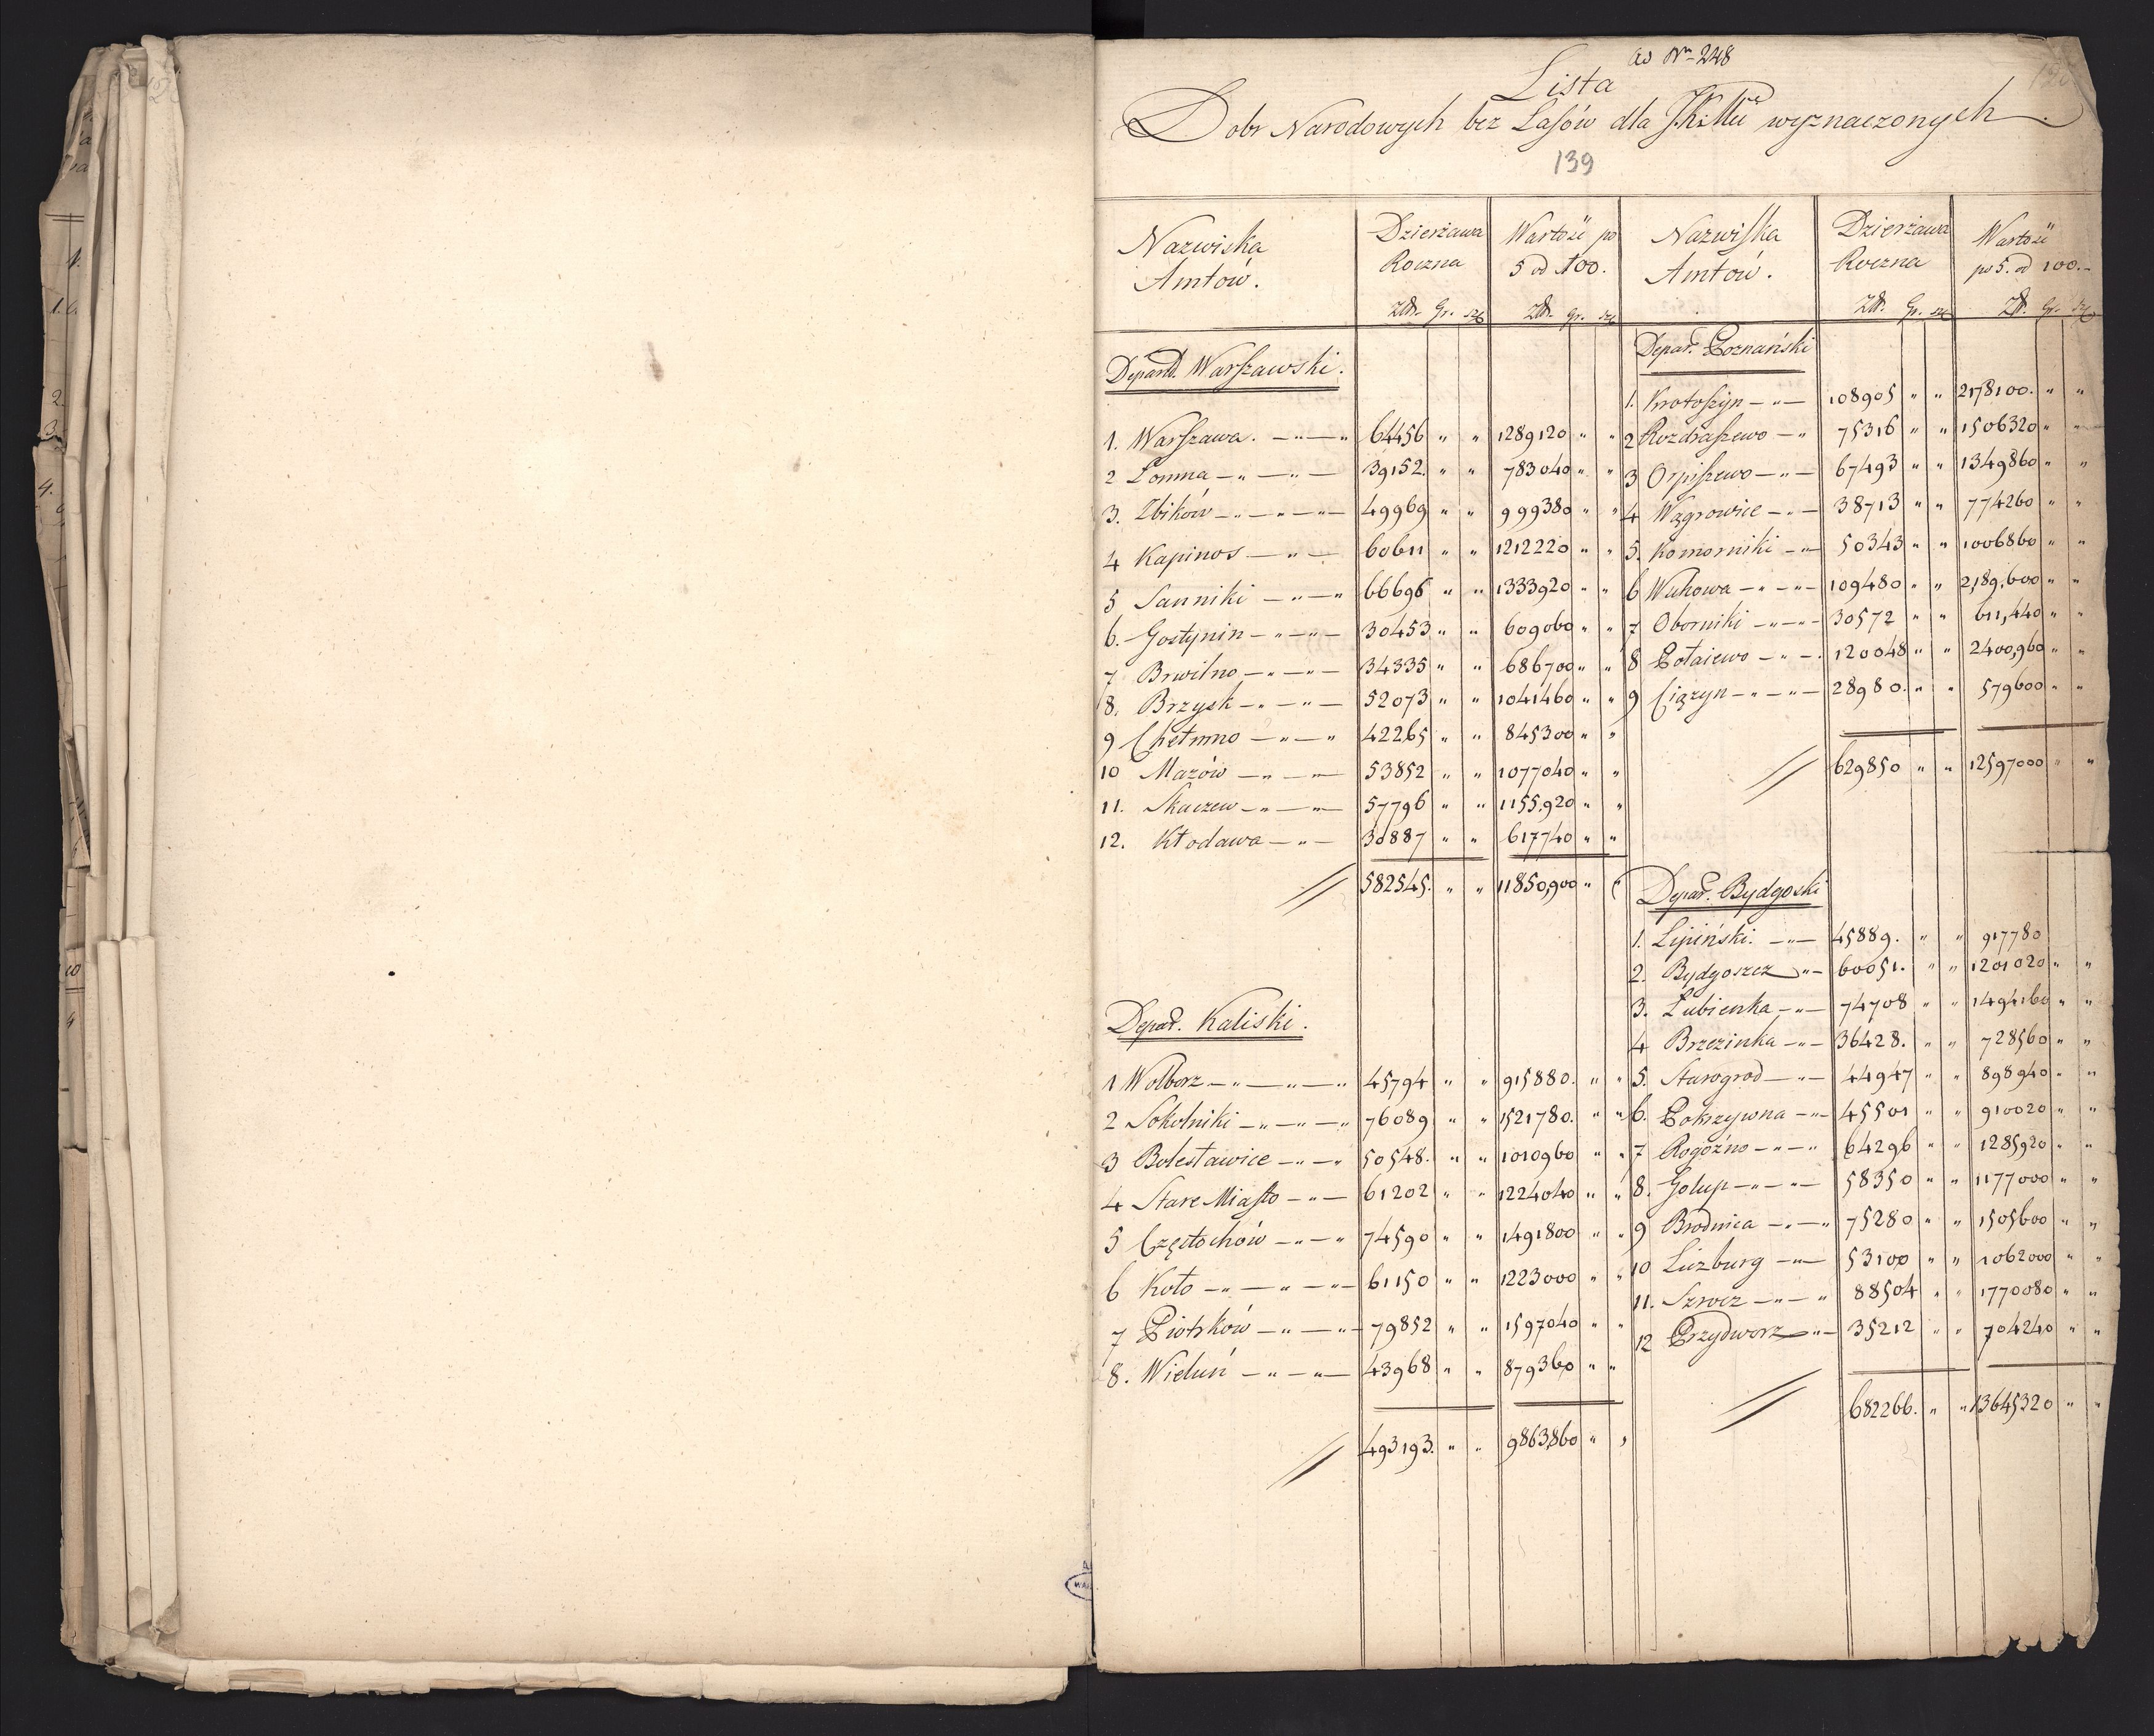 ad Nm 248
Lista
Dobr Narodowych bez Lasów dla wyznaczonych
139
Nazwiska Amtów. | Dzierżawa Roczna | Wartość po 5 od 100. | Nazwiska Amtów. | Dzierżawa Roczna | Wartość po 5. od 100.
Gr. | Gr. | Gr. | Gr.
Departt. Warszawski.
1. Warszawa. 64456 " " 1289120 " "
2 Lomna 39152. " " 783040 " "
3. Zbików 49969 " " 999380 " "
4 Kapinos 60611 " " 1212220 " "
5 Sanniki 66696 " " 1333920 " "
6. Gostynin 30453 " " 609060 " "
7 Brwilno 34335 " " 686700 " "
8. Brzysk 52073 " " 1041460 " "
9 Chełmno 42265 " " 845300 " "
10 Mazów 53852 " " 1077040 " "
11. Skaczew 57796 " " 1155,920 " "
12. Kłodawa 30887 " " 617740 " "
582545. " " 11850,900 "
Depart. Kaliski.
1 Wolborz 45794 " " 915880. " "
2 Sokolniki 76089 " " 1521780. " "
3 Bolesławice 50548. " " 1010960 " "
4 Stare Miasto 61202 " " 1224040 " "
5 Częstochów 74590 " " 1491800 " "
6 Koło 61150 " " 1223000 " "
7 Piotrków 79852 " " 1597040 " "
8. Wieluń 43968 " " 879360 " "
493193. " " 9863860 "
Depart. Poznański
1. Krotoszyn 108905 " " 2178100. " "
2 Rozdraszewo 75316 " " 1506320 " "
3 Orpiszewo 67493 " " 1349860 " "
4 Wągrowice 38713 " " 774260 " "
5. Komorniki 50343 " " 1006860 " "
6 Wchowa 109480 " " 2,189,600 " "
7 Oborniki 30572 " " 611,440 " "
8 Połaiewo 120048 " " 2400,960 " "
9 Ciązyn 28980. " " 579600 " "
629850 " " 12597000 " "
Depart. Bydgoski
1. Lipiński. 45889. " " 917780
2. Bydgoszcz 60051. " " 1201020 " "
3. Lubienka 74708 " " 1494160 " "
4 Brzezinka 36428. " " 728560 " "
5. Starogrod 44947 " " 898940 " "
6. Pokrzywna 45501 " " 910020 " "
7 Rogoźno 64296 " " 1285920 " "
8. Golup 58350 " " 1177000 " "
9 Brodnica 75280 " " 1505600 " "
10 Lizburg 53100 " " 1062000 " "
11. Szrocz 88504 " " 1770080 " "
12 Przydworz 35212 " " 704240 " "
682266. " " 13645320 " "